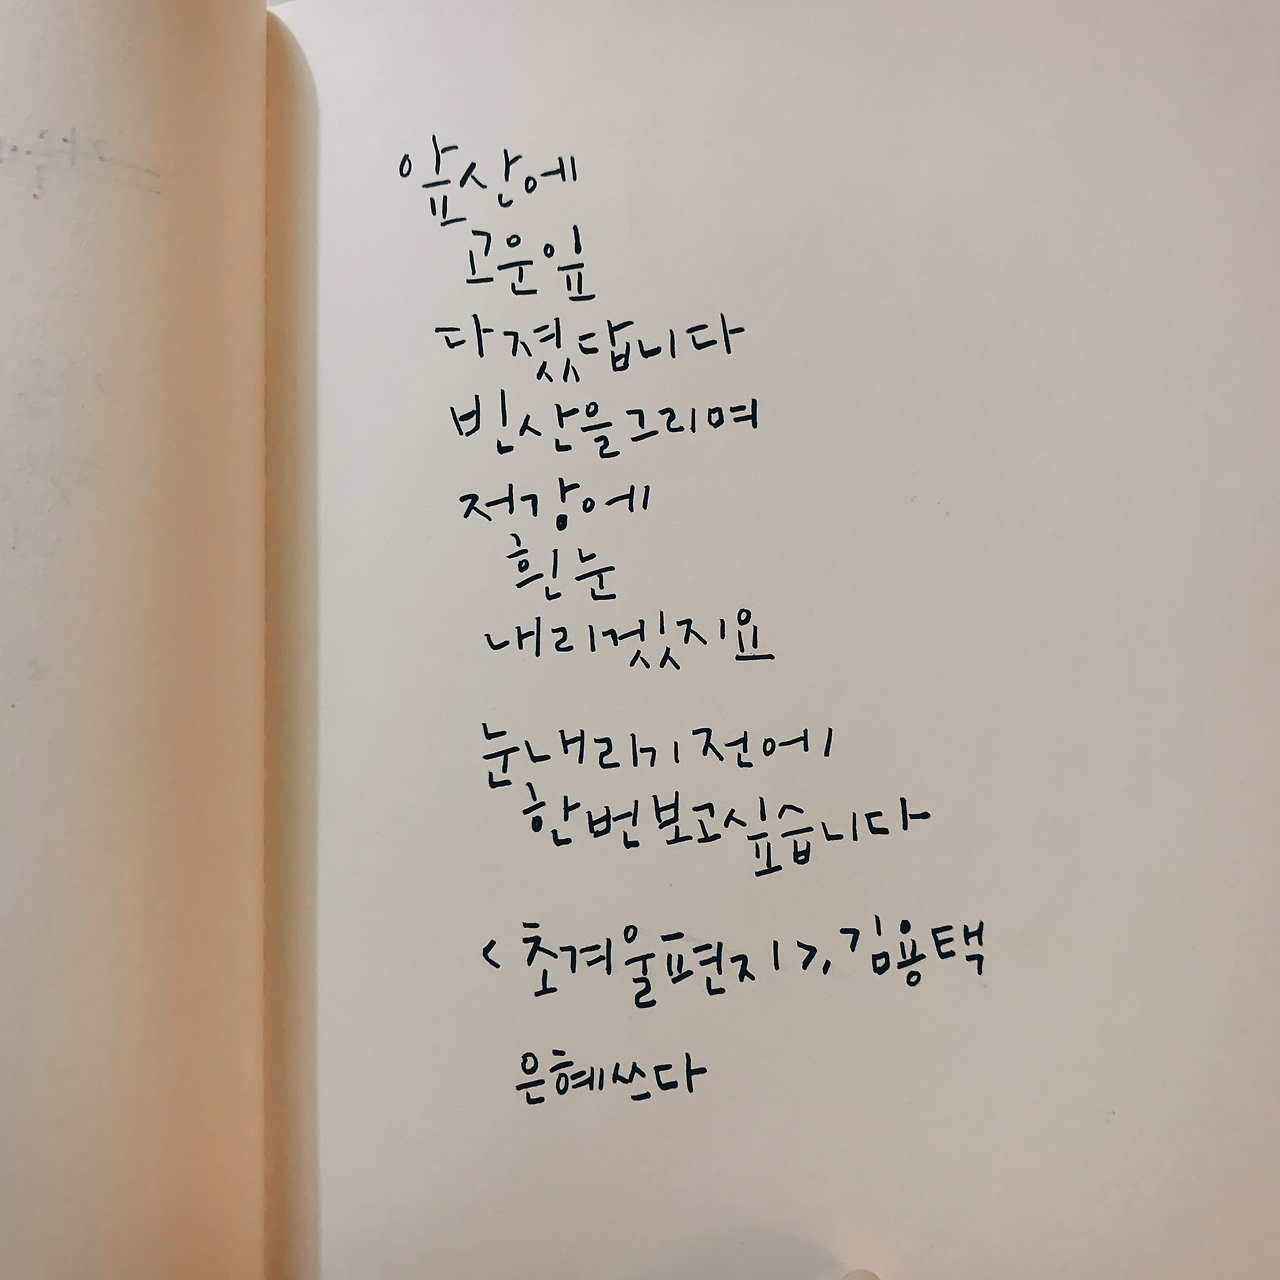 앞산에
고운잎
다졌답니다
빈산을그리며
저강에
흰눈
내리겠지요
눈내리기전에
한번보고싶습니다
<초겨울편지>, 김용택
은혜쓰다